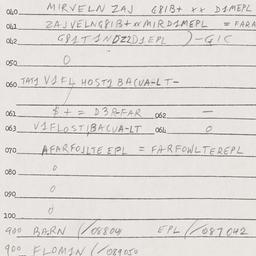 040 MIRVELN ZAJ G8IB+ xx D1MEPL
041 ZAJVELNG8IB+xxMIRD1MEPL = FARA
042 G81T1NDZZD1EPL )-GIC
050 0
060 TAT1 V1FL HOST1 BACUA-LT-
061 $ + = D3R-FAR 062 —
063 V1FLOST1BACUA-LT 064 0
070 AFARFOJLTE EPL = FARFOWLTEREPL
080 0
090 0
100 0
900 BARN (/08804 EPL /087042
900 FLOMIN (/089050